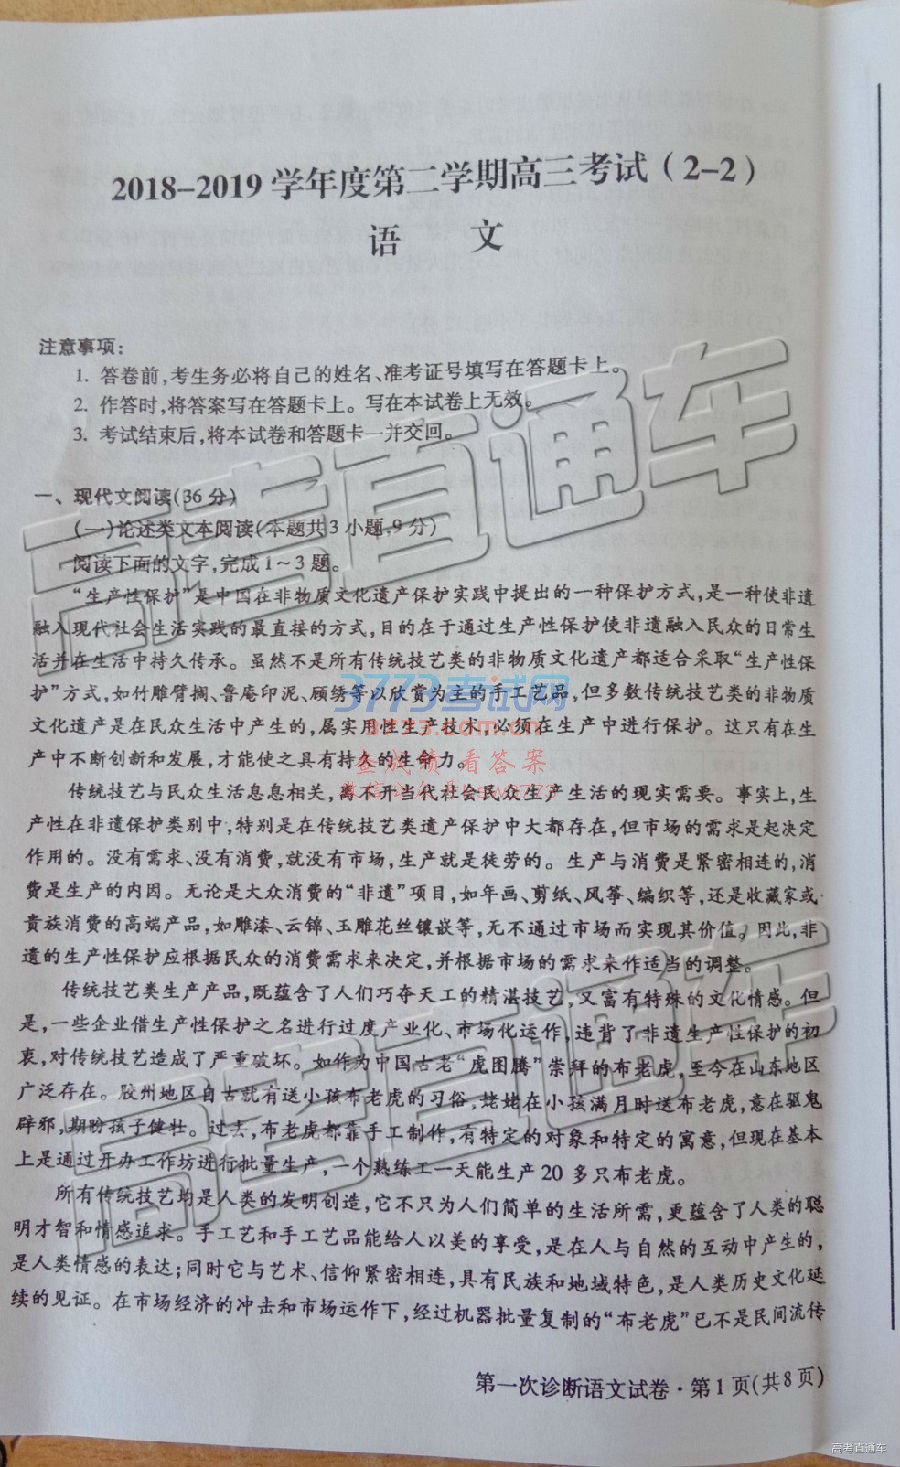 2018-2019学年度第二学期高三考试(2-2)
语 文
注意事项:
1. 答卷前,考生务必将自己的姓名、准考证号填写在答题卡上。
2. 作答时,将答案写在答题卡上。写在本试卷上无效。
3. 考试结束后,将本试卷和答题卡一并交回。
一、现代文阅读(36分)
(一)论述类文本阅读(本题共3小题,9分)
阅读下面的文字,完成1~3题。
“生产性保护”是中国在非物质文化遗产保护实践中提出的一种保护方式,是一种使非遗
融入现代社会生活实践的最直接的方式,目的在于通过生产性保护使非遗融入民众的日常生
活并在生活中持久传承。虽然不是所有传统技艺类的非物质文化遗产都适合采取“生产性保
护”方式,如竹雕臂搁、鲁庵印泥、顾绣等以欣赏为主的手工艺品,但多数传统技艺类的非物质
文化遗产是在民众生活中产生的,属实用性生产技术,必须在生产中进行保护。这只有在生
产中不断创新和发展,才能使之具有持久的生命力。
传统技艺与民众生活息息相关,离不开当代社会民众生产生活的现实需要。事实上,生
产性在非遗保护类别中,特别是在传统技艺类遗产保护中大都存在,但市场的需求是起决定
作用的。没有需求、没有消费,就没有市场,生产就是徒劳的。生产与消费是紧密相连的,消
费是生产的内因。无论是大众消费的“非遗”项目,如年画、剪纸、风筝、编织等,还是收藏家或
贵族消费的高端产品,如雕漆、云锦、玉雕花丝镶嵌等,无不通过市场而实现其价值。因此,非
遗的生产性保护应根据民众的消费需求来决定,并根据市场的需求来作适当的调整。
传统技艺类生产产品,既蕴含了人们巧夺天工的精湛技艺,又富有特殊的文化情感。但
是,一些企业借生产性保护之名进行过度产业化、市场化运作,违背了非遗生产性保护的初
衷,对传统技艺造成了严重破坏。如作为中国古老“虎图腾”崇拜的布老虎,至今在山东地区
广泛存在。胶州地区自古就有送小孩布老虎的习俗,姥姥在小孩满月时送布老虎,意在驱鬼
辟邪,期盼孩子健壮。过去,布老虎都靠手工制作,有特定的对象和特定的寓意,但现在基本
上是通过开办工作坊进行批量生产,一个熟练工一天能生产20多只布老虎。
所有传统技艺均是人类的发明创造,它不只为人们简单的生活所需,更蕴含了人类的聪
明才智和情感追求。手工艺和手工艺品能给人以美的享受,是在人与自然的互动中产生的,
是人类情感的表达;同时它与艺术、信仰紧密相连,具有民族和地域特色,是人类历史文化延
续的见证。在市场经济的冲击和市场运作下,经过机器批量复制的“布老虎”已不是民间流传
第一次诊断语文试卷·第1页(共8页)
高考直通车
高考直通车
3773考试网
3773.com.cn
查成绩 看答案
高考直通车